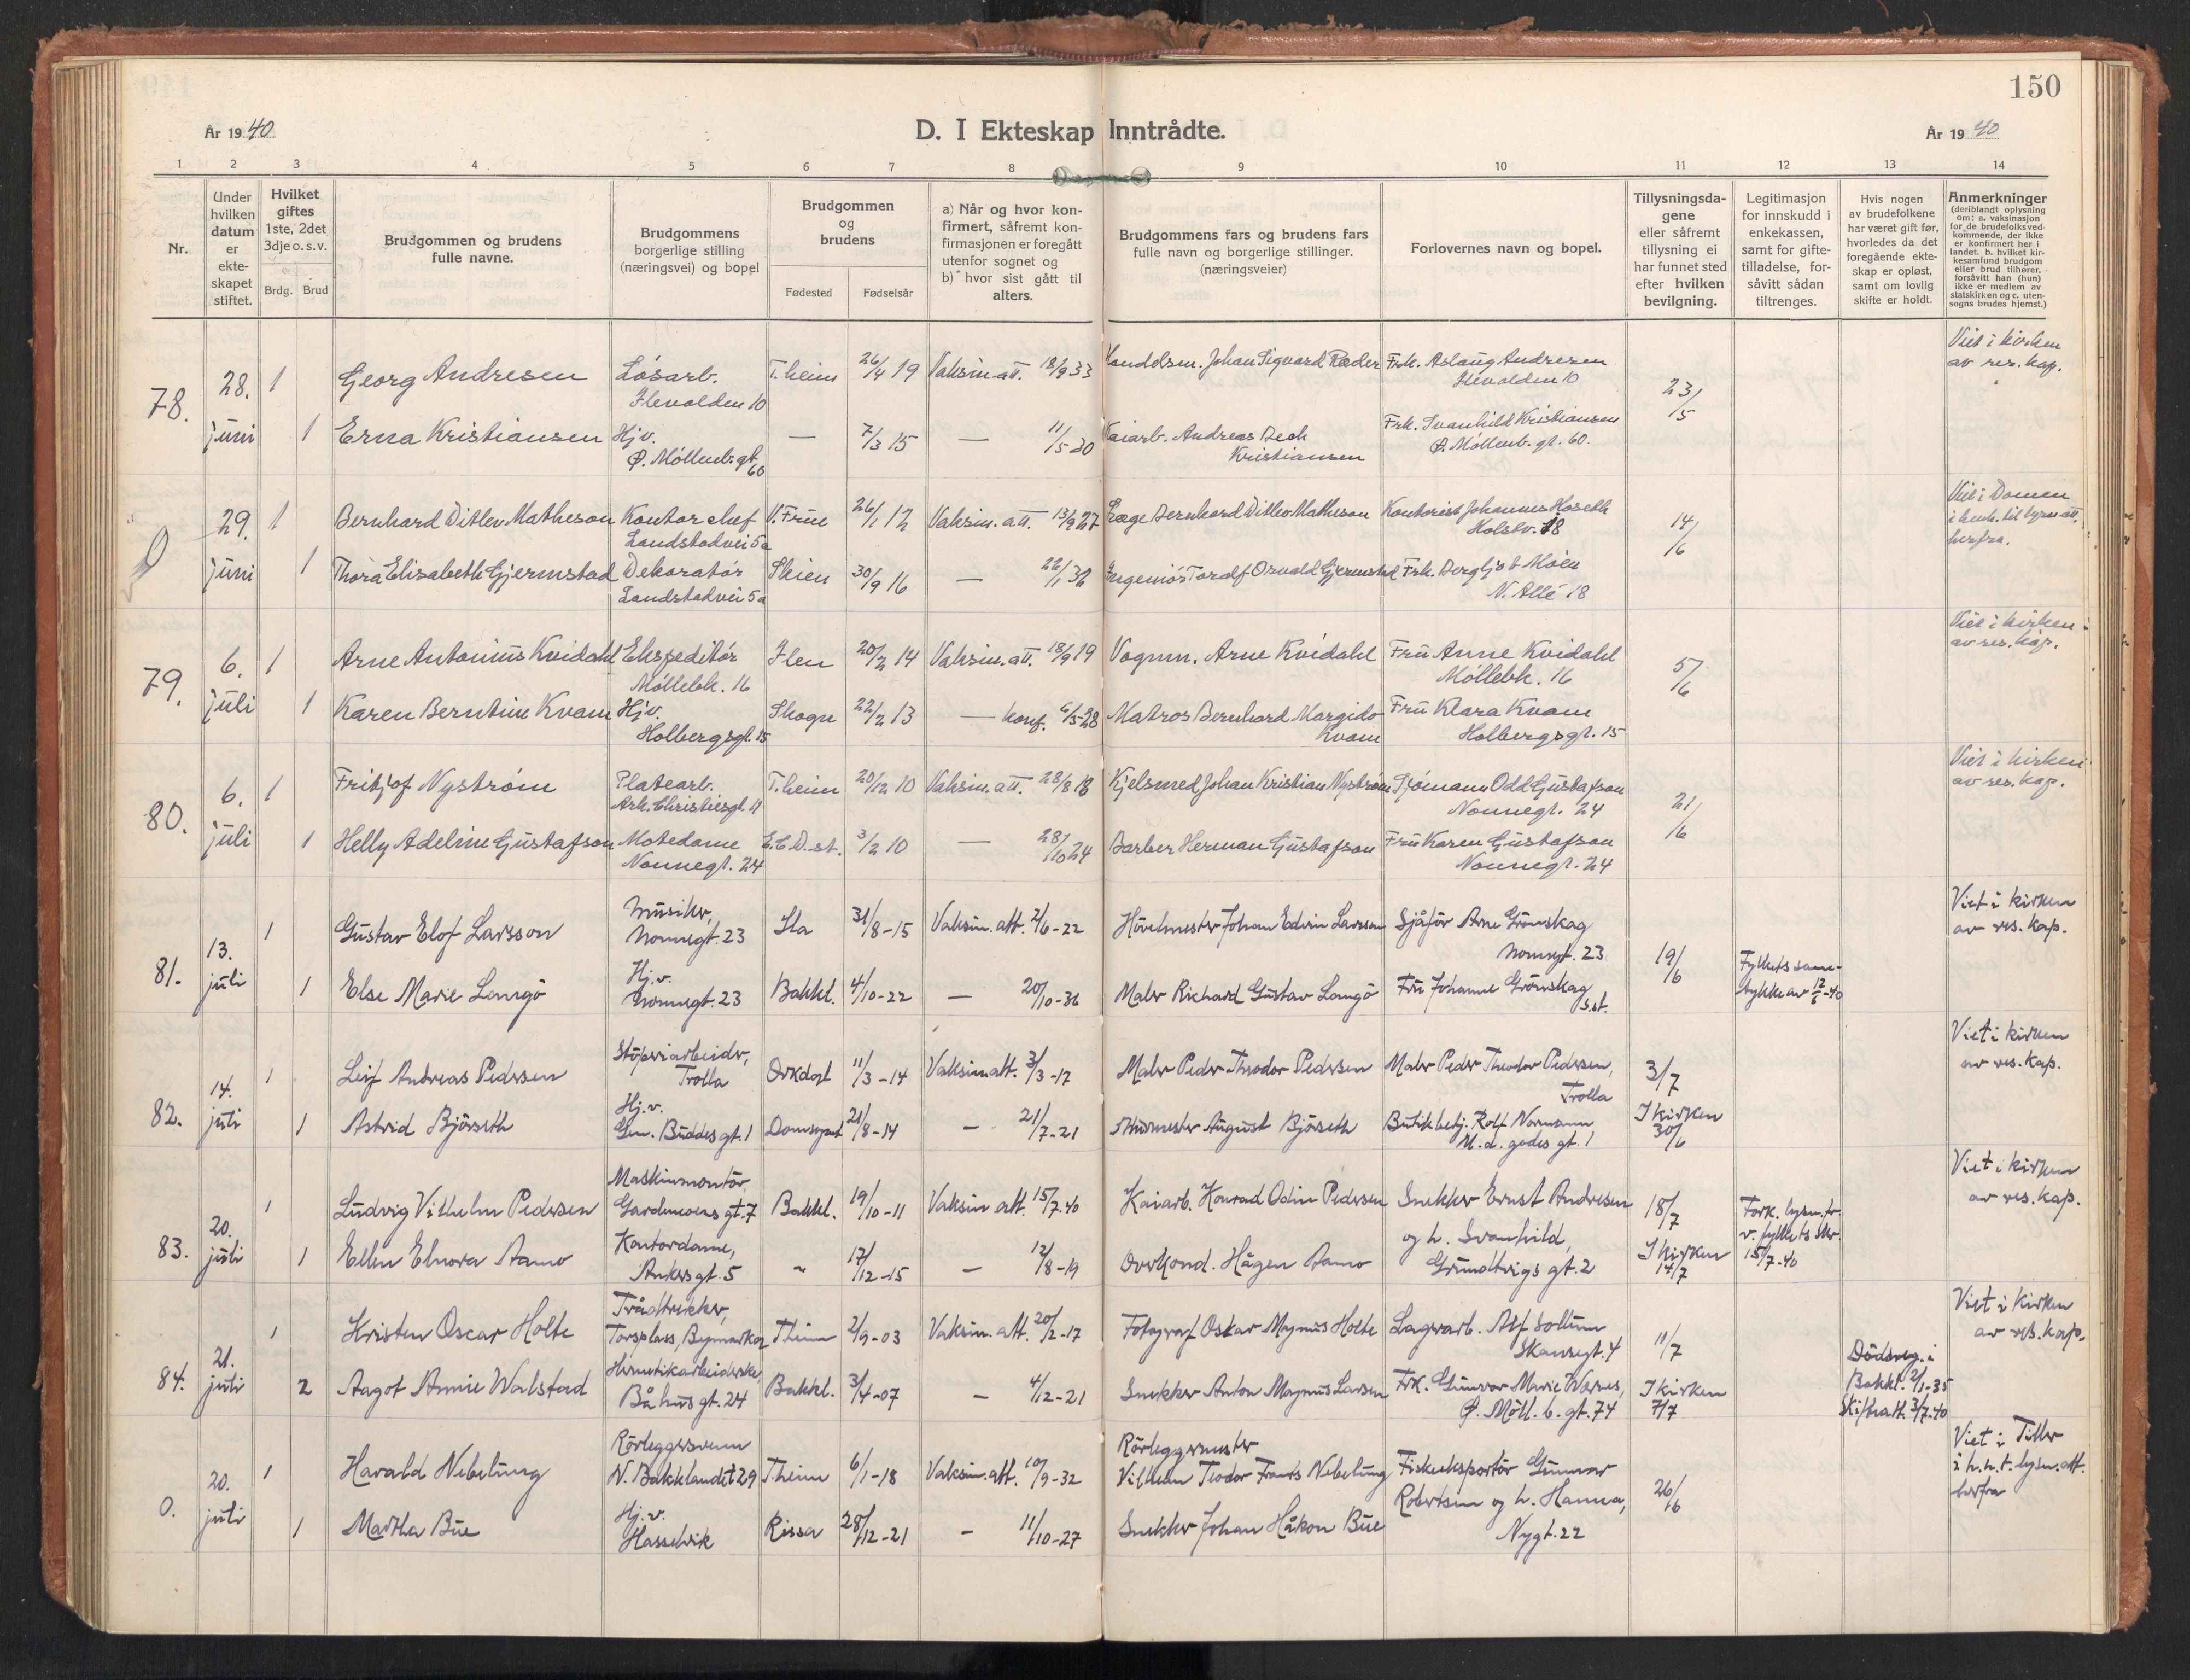 150
År 1940
D. I Ekteskap Inntrådte.
År 1940
1 2 3 4 5 6 7 8 9 10 11 12 13 14
Nr.
Under hvilken datum er ekteskapet stiftet.
Hvilket giftes 1ste, 2det 3dje o.s.v.
Brdg. Brud
Brudgommen og brudens fulle navne.
Brudgommens borgerlige stilling (næringsvei) og bopel
Brudgommen og brudens
Fødested Fødselsår
a) Når og hvor konfirmert, såfremt konfirmasjonen er foregått utenfor sognet og
b) hvor sist gått til alters.
Brudgommens fars og brudens fars fulle navn og borgerlige stillinger. (næringsveier)
Forlovernes navn og bopel.
Tillysningsdagene eller såfremt tillysning ei har funnet sted efter hvilken bevilgning.
Legitimasjon for innskudd i enkekassen, samt for giftetilladelse, forsåvitt sådan tiltrenges.
Hvis nogen av brudefolkene har været gift før, hvorledes da det foregående ekteskap er opløst, samt om lovlig skifte er holdt.
Anmerkninger (deriblandt oplysning om: a. vaksinasjon for de brudefolks vedkommende, der ikke er konfirmert her i landet. b. hvilket kirkesamfund brudgom eller brud tilhører, forsåvitt han (hun) ikke er medlem av statskirken og c. utensogns brudes hjemst.)
78. 28. juni 1 Georg Andresen Løsarb. Ilevolden 10 T.heim 26/4 19 Vaksin. att. 18/9 33 Handelsm. Johan Sigvard Ræder Frk. Aslaug Andresen Ilevolden 10 23/5 Viet i kirken av res. kap.
1 Erna Kristiansen Hjv. Ø. Møllenb. gt 60 — 7/3 15 — 11/5 30 Kaiarb. Andreas Kristiansen Frk. Svanhild Kristiansen Ø. Møllenb. gt. 60.
0 29. juni 1 Bernhard Ditlev Matheson Kontorchef Landstadvei 5a V. Frue 26/1 12 Vaksin. att. 13/9 27 Læge Bernhard Ditlev Matheson Kontorist Johannes Hoseth Holstv. 18 14/6 Viet i Domen i henh. til lysn.att. herfra.
1 Thora Elisabeth Gjermstad Dekoratør Landstadvei 5a Skien 30/9 16 — 22/1 32 Ingeniør Toralf Osvald Gjermstad Frk. Bergljot Moen N. Allé 18
79. 6. juli 1 Arne Antonius Kvidahl Ekspeditør Møllebk. 16 Ilen 20/2 14 Vaksin. att. 18/9 19 Vognm. Arne Kvidahl Fru Anne Kvidahl Møllebk. 16 5/6 Viet i kirken av res. kap.
1 Karen Berntine Kvam Hjv. Holbergsgt. 15 Skogn 22/2 13 — konf. 6/5-28 Matros Bernhard Margido Kvam Fru Klara Kvam Holbergsgt. 15
80. 6. juli 1 Fritjof Nystrøm Platearb. Ark. Christiesgt. 11 T.heim 20/12 10 Vaksin. att. 28/8 18 Kjelsmed Johan Kristian Nystrøm Sjømann Odd Gustafson Nonnegt. 24 21/6 Viet i kirken av res. kap.
1 Helly Adeline Gustafson Motedame Nonnegt. 24 E.C.D. st. 3/2 10 — 28/10 24 Barber Herman Gustafson Fru Karen Gustafson Nonnegt. 24
81. 13. juli 1 Gustav Elof Larsson Musiker, Nonnegt. 23 Sla 31/8-15 Vaksin. att. 2/6-22 Hovelmester Johan Edvin Larsson Sjåför Arne Grönskag Nonnegt. 23 19/6 Fylkets samtykke av 12/6-40 Viet i kirken av res. kap.
1 Else Marie Langö Hj.v. Nonnegt. 23 Bakkl. 4/10-22 — 20/10-36 Maler Richard Gustav Langö Fru Johanne Grönskag s.st.
82. 14. juli 1 Leif Andreas Pedersen Stöperiarbeider, Trolla Orkdal 11/3-14 Vaksin att. 3/3-17 Maler Peder Theodor Pedersen Maler Peder Theodor Pedersen, Trolla 3/7 Viet i kirken av res. kap.
1 Astrid Björseth Hj.v. Gen. Buddes gt. 1 Domsognet 21/8-14 — 21/7-21 Murmester August Björseth Butikbetj. Rolf Normann M. d. godes gt. 1 I kirken 30/6
83. 20. juli 1 Ludvig Vilhelm Pedersen Maskinmontör, Gardemoens gt. 7 Bakkl. 19/10-11 Vaksin att. 15/7-40 Kaiarb. Konrad Odin Pedersen Snekker Ernst Andresen og h. Svanhild, Grundtvigs gt. 2 18/7 Fork. lysn.fr. v. fylkets skr. 15/7-40 Viet i kirken av res. kap.
1 Ellen Elnora Aamo Kontordame, Ankersgt. 5 " 17/12-15 — 12/8-19 Overkond. Hågen Aamo I kirken 14/7
84. 21. juli 1 Kristen Oscar Holte Trådtrekker, Torsplass, Bymarka T.heim 2/9-03 Vaksin. att. 20/2-17 Fotograf Oskar Magnus Holte Lagerarb. Alf Sollum Skansegt. 4 11/7 Viet i kirken av res. kap.
2 Aagot Annie Walstad Hermetikarbeiderske, Båhus gt. 24 Bakkl. 3/4-07 — 4/12-21 Snekker Anton Magnus Larsen Frk. Gunvor Marie Warnes, Ø. Möll. b. gt. 74 I kirken 7/7 Dödsreg. i Bakkl. 2/1-35 Skifteatt. 3/7-40
0. 20. juli 1 Harald Nebelung Rörleggersvenn N. Bakklandet 29 T.heim 6/1-18 Vaksin. att. 10/9-32 Rörleggermester Vilhelm Teodor Frants Nebelung Fiskeeksportör Gunnar Robertsen og h. Hanna, Nygt. 22 26/6 Viet i Tiller i h.h.t. lysn. att. herfra
1 Martha Bue Hj.v. Hasselvik Rissa 28/12-21 — 11/10-27 Snekker Johan Håkon Bue